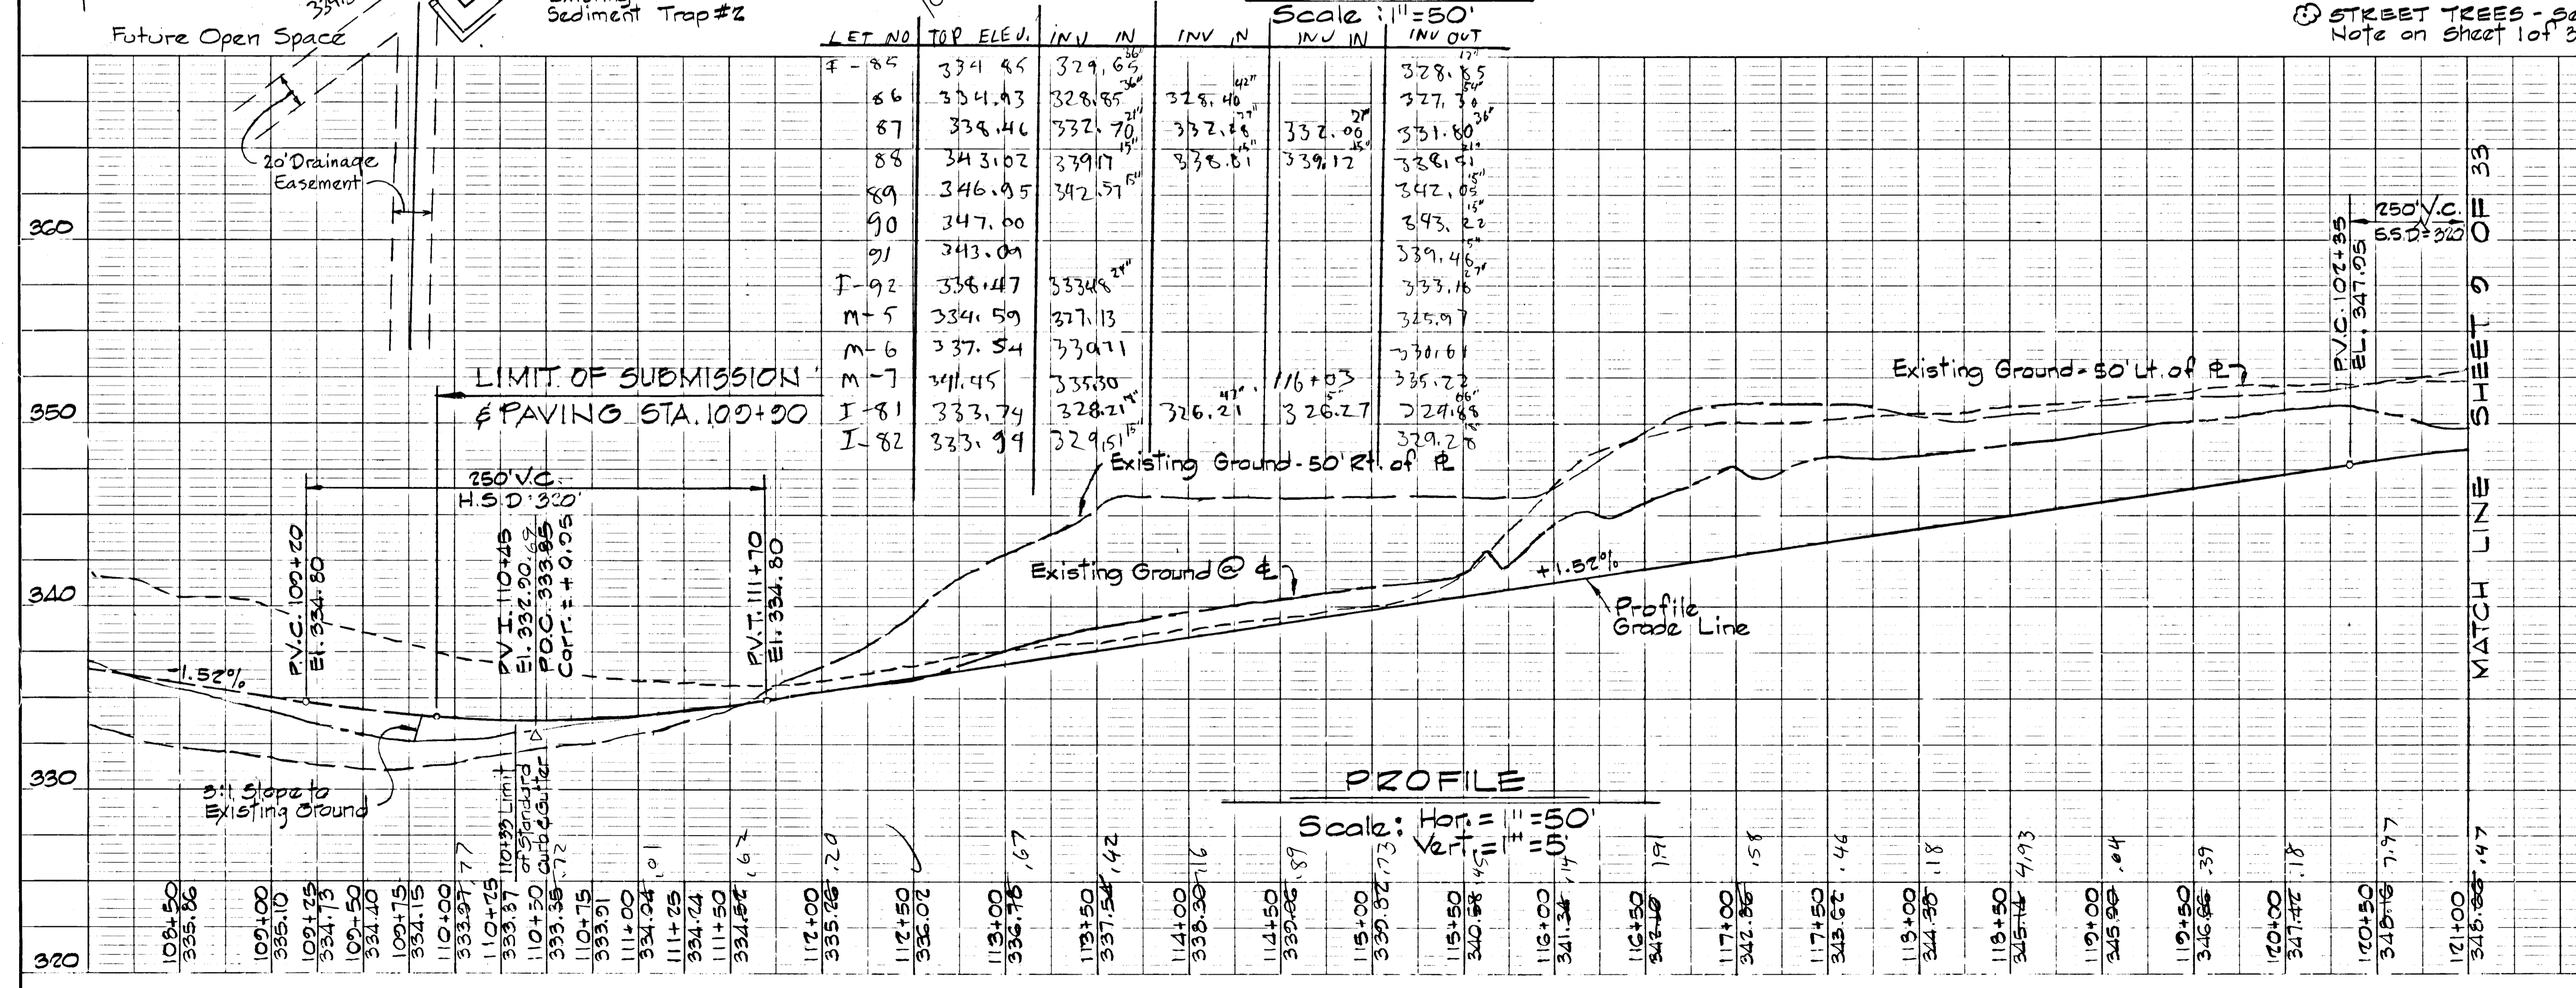 Sediment Trap #2
Future Open Space
20' Drainage
Easement
Scale: 1"=50'
STREET TREES - Se
Note on Sheet 1 of 3
LET NO TOP ELEV. INV IN INV IN INV IN INV OUT
I-85 334.85 329.65 36" 328.85
86 334.93 328.85 36" 328.40 42" 327.30 54"
87 338.46 332.70 21" 332.28 332.00 331.80 36"
88 343.02 339.17 15" 338.81 15" 339.12 15" 338.51
89 346.95 342.57 15" 342.05 15"
90 347.00 343.22 15"
91 343.09 339.46
I-92 338.47 333.48 333.16
M-5 334.59 327.13 325.97
M-6 337.54 330.71 330.61
M-7 341.45 335.30 116+03 335.22
I-81 333.74 328.21 326.21 326.27
I-82 333.94 329.51 15" 329.28
360
350
340
330
320
LIMIT OF SUBMISSION
& PAVING STA. 109+90
250' V.C.
H.S.D. 320'
P.V.C. 109+20
El. 334.80
P.V.I. 110+45
El. 332.90
P.O.C. 333.85
Corr. = +0.95
P.V.T. 111+70
El. 334.80
-1.52%
3:1 Slope to
Existing Ground
110+33 Limit
of Standard
Curb & Gutter
Existing Ground-50' Rt. of ℄
Existing Ground @ ℄
+1.52%
Profile
Grade Line
Existing Ground-50' Lt. of ℄
P.V.C. 102+35
EL. 347.95
250' V.C.
S.S.D.=320
MATCH LINE SHEET 9 OF 33
PROFILE
Scale: Hor. = 1"=50'
Vert. = 1"=5'
108+50 335.86
109+00 335.10
109+25 334.73
109+50 334.40
109+75 334.15
110+00 333.97 .77
110+25 333.37
110+50 333.35 .72
110+75 333.91
111+00 334.04 .01
111+25 334.24
111+50 334.52 .62
112+00 335.26 .20
112+50 336.02
113+00 336.78 .67
113+50 337.54 .42
114+00 338.30 .16
114+50 339.06 .89
115+00 339.82 .73
115+50 340.58 .45
116+00 341.34 .14
116+50 342.10 1.91
117+00 342.86 .58
117+50 343.62 .46
118+00 344.38 .18
118+50 345.14 4.93
119+00 345.90 .64
119+50 346.66 .39
120+00 347.42 .18
120+50 348.16 7.97
121+00 348.86 .47